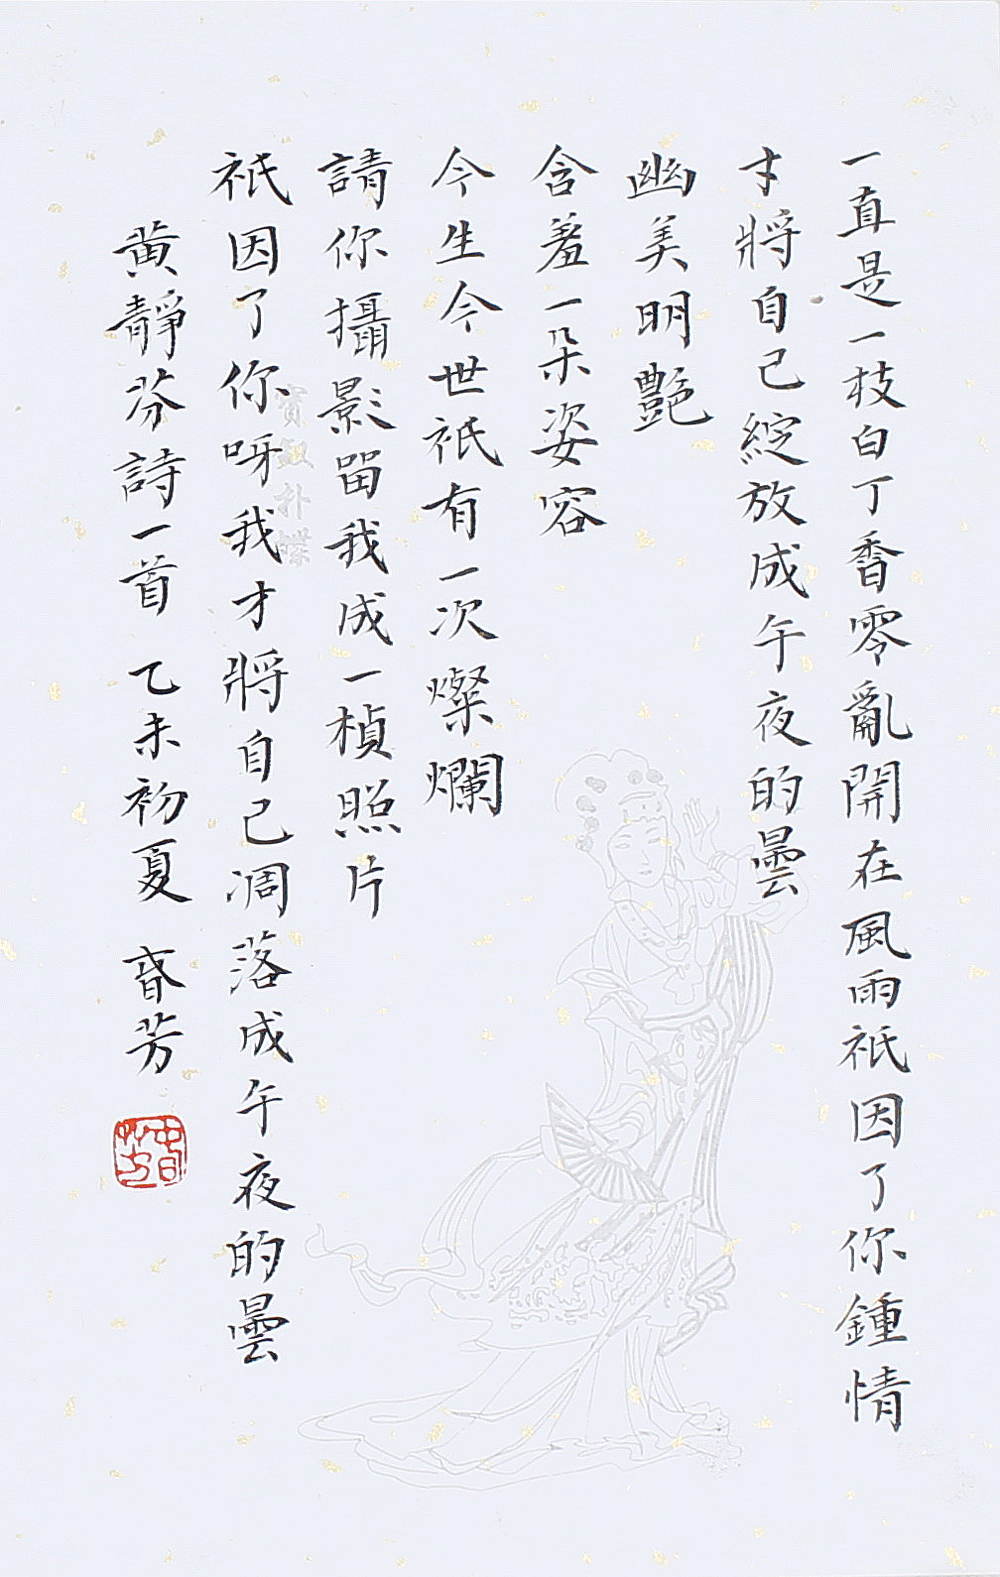 一直是一枝白丁香零亂開在風雨祇因了你鍾情
才將自己綻放成午夜的曇
幽美明艷
含羞一朵姿容
今生今世祇有一次燦爛
請你攝影留我成一楨照片
祇因了你呀我才將自己凋落成午夜的曇
黄靜芬詩一首 乙未初夏 春芳